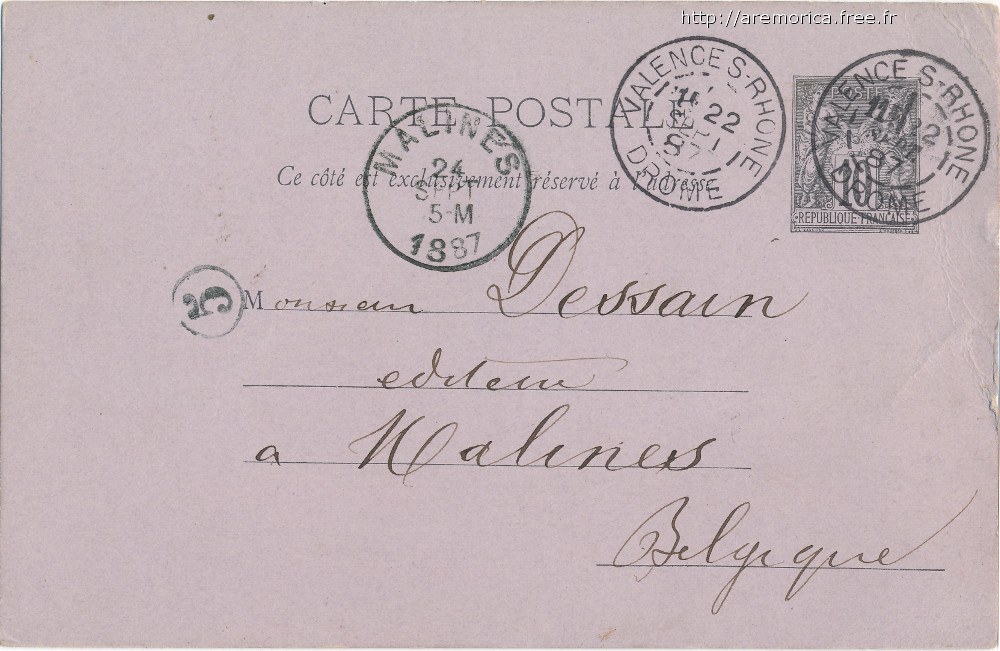 http://aremorica.free.fr
CARTE POSTALE
Ce côté est exclusivement réservé à l'adresse.
VALENCE S-RHONE
22
SEPT
87
DROME
VALENCE S-RHONE
22
87
DROME
POSTES
10
REPUBLIQUE FRANÇAISE
MALINES
24
SEPT
5-M
1887
5
Monsieur Dessain
editeur
a Malines
Belgique